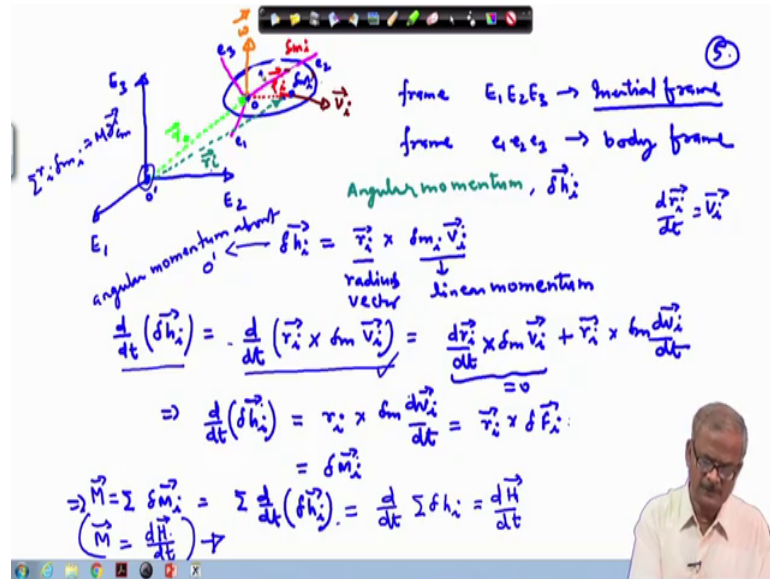 5.
e₃
δmᵢ
e₂
ω⃗
E₃
O
r⃗ᵢ
δmᵢ
V⃗ᵢ
e₁
r⃗₀
r⃗ᵢ
O'
E₂
E₁
Σ rᵢ δmᵢ = M r⃗cm
frame E₁E₂E₃ → Inertial frame
frame e₁e₂e₃ → body frame
Angular momentum, δh⃗ᵢ
dr⃗ᵢ/dt = V⃗ᵢ
angular momentum about O' ← δh⃗ᵢ = r⃗ᵢ × δmᵢ V⃗ᵢ
radius vector
linear momentum
d/dt (δh⃗ᵢ) = d/dt (r⃗ᵢ × δm V⃗ᵢ) = dr⃗ᵢ/dt × δm V⃗ᵢ + r⃗ᵢ × δm dv⃗ᵢ/dt
= 0
⇒ d/dt (δh⃗ᵢ) = rᵢ × δm dv⃗ᵢ/dt = r⃗ᵢ × δF⃗ᵢ
= δM⃗ᵢ
⇒ M⃗ = Σ δM⃗ᵢ = Σ d/dt (δh⃗ᵢ) = d/dt Σ δhᵢ = dH⃗/dt
(M⃗ = dH⃗/dt) →